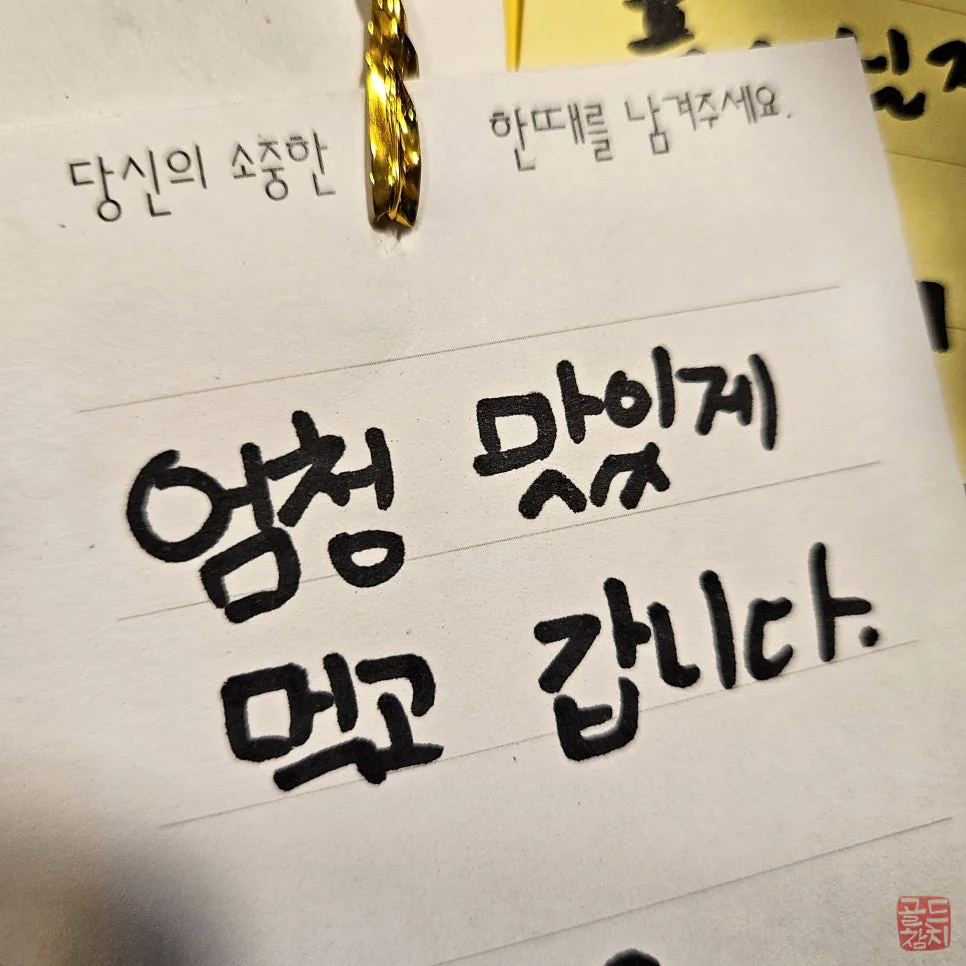 당신의 소중한 한때를 남겨주세요.
엄청 맛있게
먹고 갑니다.
골드
참치